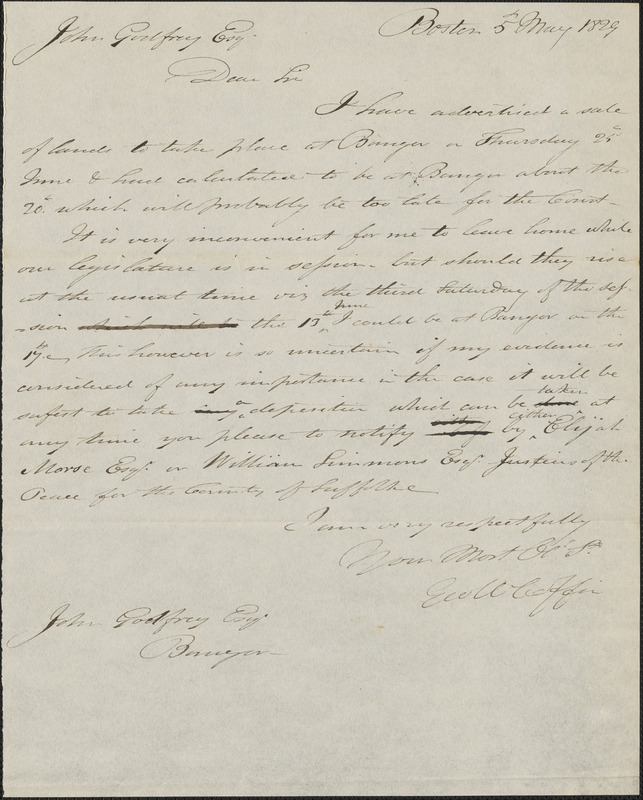 John Godfrey Esq. Boston 5th May 1829
Dear Sir
I have advertised a sale
of lands to take place at Bangor on Thursday 25th
June & had calculated to be at Bangor about the
20th which will probably be too late for the Court –
It is very inconvenient for me to leave home while
our legislature is in session – but should they rise
at the usual time viz the third Saturday of the Ses-
-sion the 13th June I could be at Bangor on the
17th, this however is so uncertain if my evidence is
considered of any importance in the case it will be
safest to take a deposition which can be taken at
any time you please to notify by either Elijah
Morse Esqr. or William Simmons Esqr. Justices of the
Peace for the County of Suffolk
I am very respectfully
Your Most Ob. St.
Geo W Coffin
John Godfrey Esq
Bangor